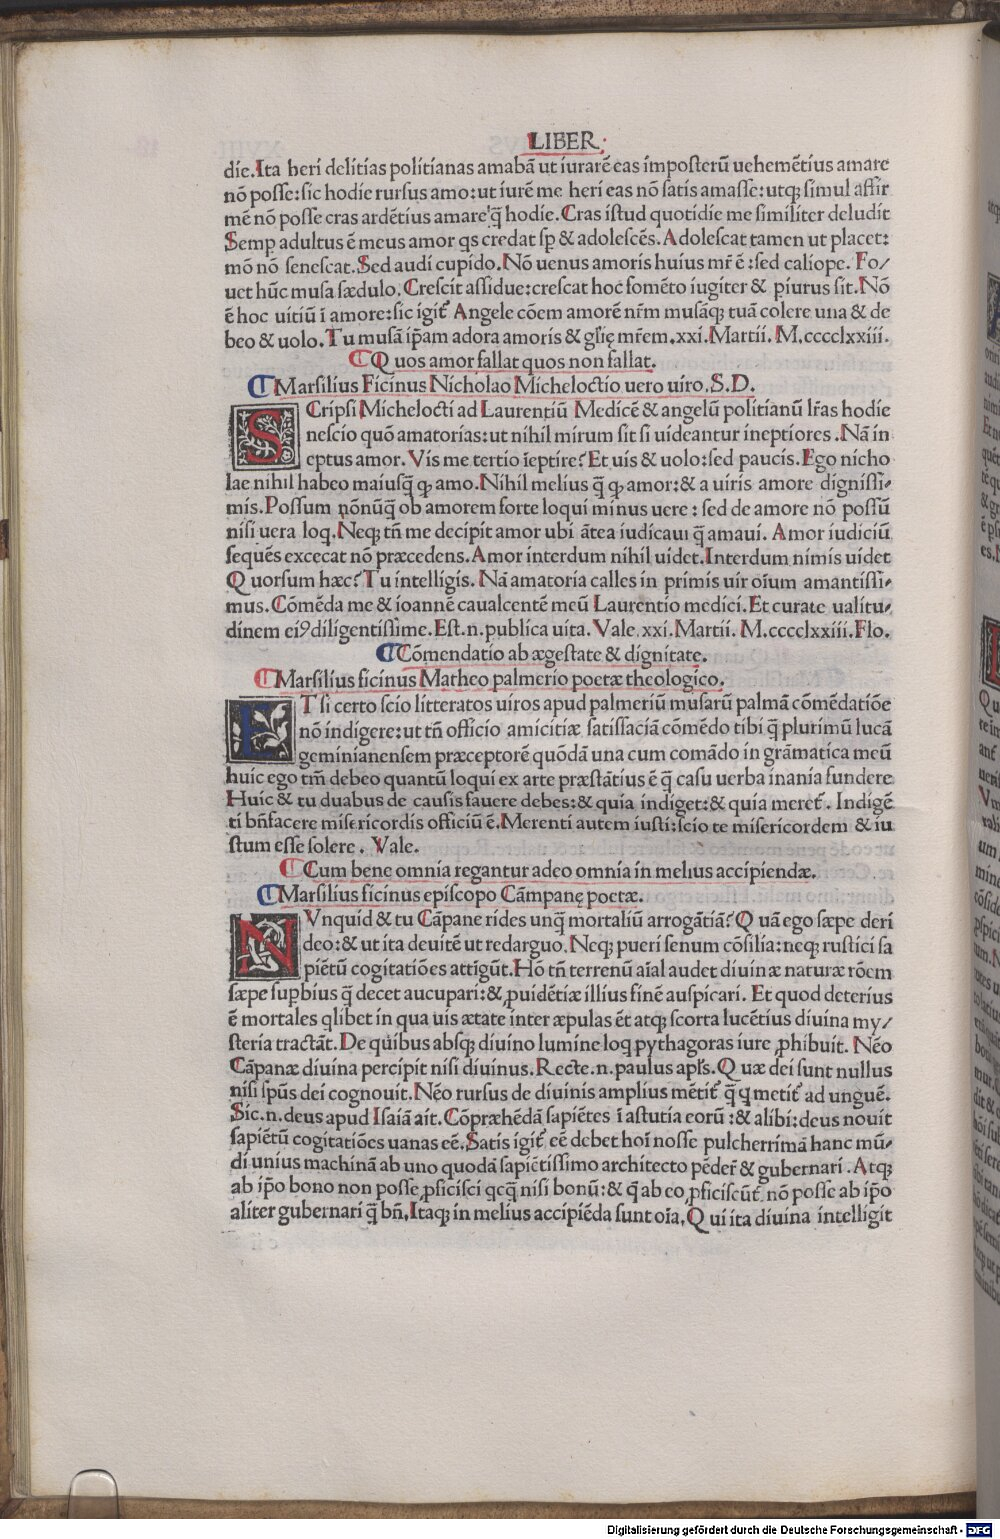 LIBER
die. Ita heri delitias politianas amabā ut iurarē eas imposterū uehemētius amare
nō posse: sic hodie rursus amo: ut iurē me heri eas nō satis amasse: utqꝫ simul affir
mē nō posse cras ardētius amare q̄ hodie. Cras istud quotidie me similiter deludit
Semꝑ adultus ē meus amor qs credat sꝑ & adolescēs. Adolescat tamen ut placet:
mō nō senescat. Sed audi cupido. Nō uenus amoris huius mr̄ ē: sed caliope. Fo/
uet hūc musa sædulo. Crescit assidue: crescat hoc fomēto iugiter & ꝑiurus sit. Nō
ē hoc uitiū ī amore: sic igit̄ Angele cōem amorē nr̄m musāqꝫ tuā colere una & de
beo & uolo. Tu musā ip̄am adora amoris & glīę mr̄em. xxi. Martii. M.cccclxxiii.
Quos amor fallat quos non fallat.
Marsilius Ficinus Nicholao Micheloctio uero uiro. S.D.
SCripsi Michelocti ad Laurentiū Medicē & angelū politianū lr̄as hodie
nescio quō amatorias: ut nihil mirum sit si uideantur ineptiores. Nā in
eptus amor. Vis me tertio īeptire? Et uis & uolo: sed paucis. Ego nicho
lae nihil habeo maiusq̄ ꝙ amo. Nihil melius q̄ ꝙ amor: & a uiris amore dignissi-
mis. Possum nōnūq̄ ob amorem forte loqui minus uere: sed de amore nō possū
nisi uera loq. Neqꝫ tn̄ me decipit amor ubi ātea iudicaui q̄ amaui. Amor iudiciū
sequēs excecat nō præcedens. Amor interdum nihil uidet. Interdum nimis uidet
Quorsum hæc? Tu intelligis. Nā amatoria calles in primis uir oīum amantissi-
mus. Cōmēda me & ioannē caualcentē meū Laurentio medici. Et curate ualitu-
dinem eiꝰ diligentissime. Est.n. publica uita. Vale. xxi. Martii. M.cccclxxiii. Flo.
Cōmendatio ab ægestate & dignitate.
Marsilius ficinus Matheo palmerio poetæ theologico.
ET si certo scio litteratos uiros apud palmeriū musarū palmā cōmēdatiōe
nō indigere: ut tn̄ officio amicitiæ satisfaciā cōmēdo tibi q̄ plurimū lucā
geminianensem præceptorē quōdā una cum comādo in grāmatica meū
huic ego tm̄ debeo quantū loqui ex arte præstātius ē q̄ casu uerba inania fundere
Huic & tu duabus de causis fauere debes: & quia indiget: & quia meret̄. Indigē
ti bn̄facere misericordis officiū ē. Merenti autem iusti: scio te misericordem & iu
stum esse solere. Vale.
Cum bene omnia regantur adeo omnia in melius accipiendæ.
Marsilius ficinus episcopo Cāmpanę poetæ.
NVnquid & tu Cāpane rides unq̄ mortaliū arrogātiā? Quā ego sæpe deri
deo: & ut ita deuitē ut redarguo. Neqꝫ pueri senum cōsilia: neqꝫ rustici sa
piētū cogitatiōes attigūt. Hō tn̄ terrenū aīal audet diuinæ naturæ rōem
sæpe suꝑbius q̄ decet aucupari: & ꝓuidētiæ illius finē auspicari. Et quod deterius
ē mortales qlibet in qua uis ætate inter æpulas ēt atqꝫ scorta lucētius diuina my/
steria tractāt. De quibus absqꝫ diuino lumine loq pythagoras iure ꝓhibuit. Nēo
Cāpanæ diuina percipit nisi diuinus. Recte.n. paulus apl̄s. Quæ dei sunt nullus
nisi spūs dei cognouit. Nēo rursus de diuinis amplius mētit̄ q̄ q metit̄ ad unguē.
Sic.n. deus apud Isaiā ait. Cōpræhēdā sapiētes ī astutia eorū: & alibi: deus nouit
sapiētū cogitatiōes uanas eē. Satis igit̄ eē debet hoī nosse pulcherrimā hanc mū-
di unius machinā ab uno quodā sapiētissimo architecto pēder̄ & gubernari. Atqꝫ
ab ip̄o bono non posse ꝓficisci qcq̄ nisi bonū: & q̄ ab eo ꝓficiscūt̄ nō posse ab ip̄o
aliter gubernari q̄ bn̄. Itaqꝫ in melius accipiēda sunt oīa. Qui ita diuina intelligit
Digitalisierung gefördert durch die Deutsche Forschungsgemeinschaft - DFG